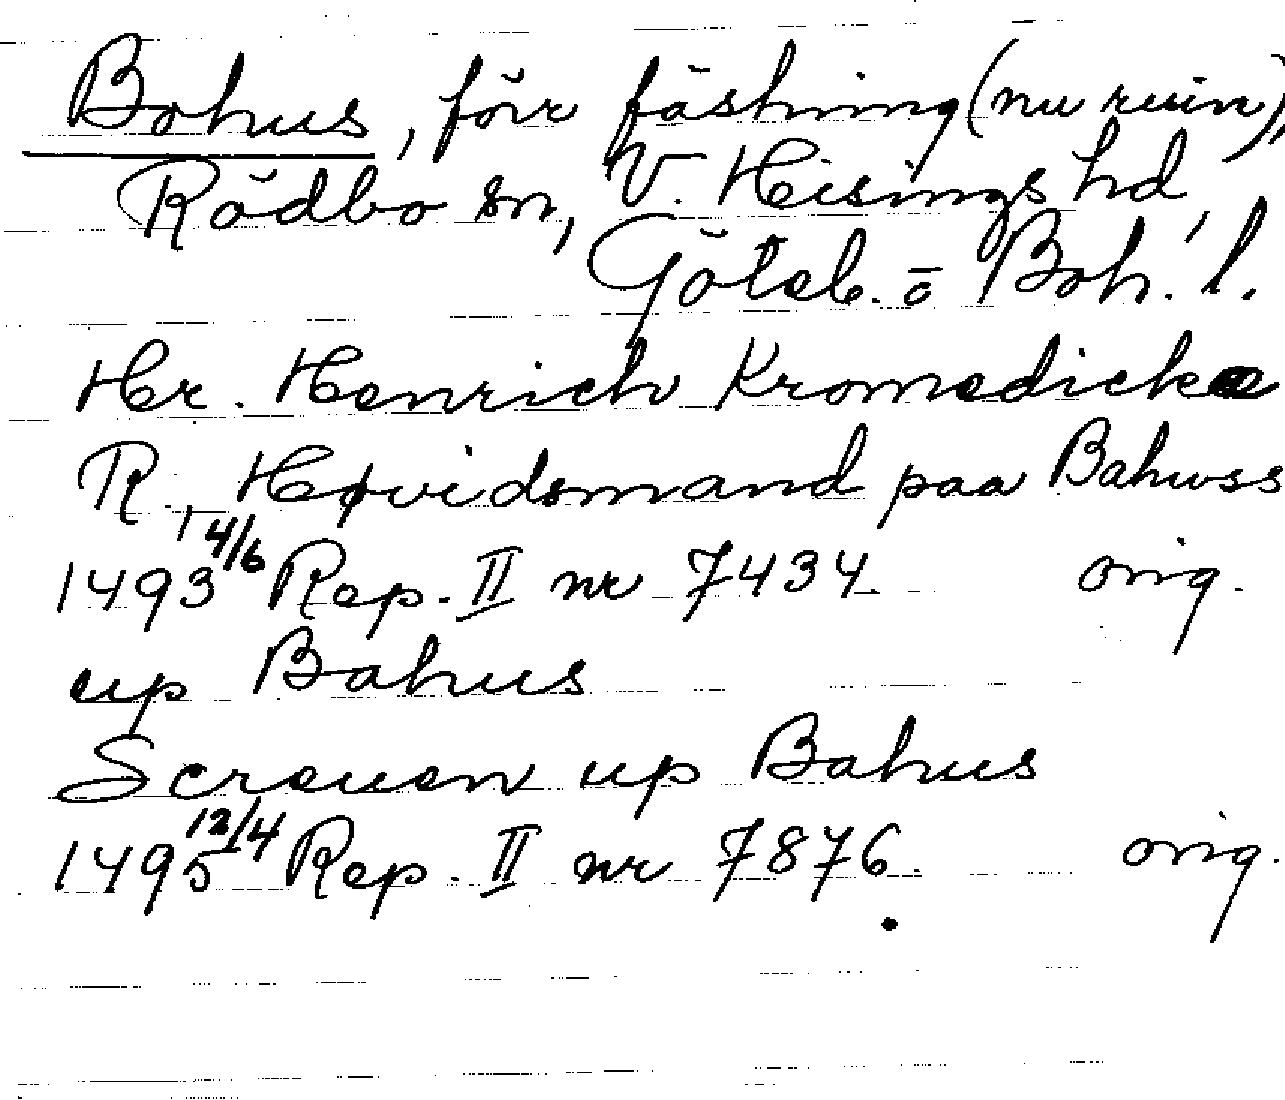 Bohus, förr fästning (nu ruin),
Rödbo sn, V. Hisings hd,
Göteb. o Boh. l.
Her. Henrich Kromedicke
R., Høvidsmand paa Bahwss
1493 4/6 Rep. II nr 7434 orig.
up Bahus
Screuen up Bahus
1495 12/4 Rep. II nr 7876. orig.